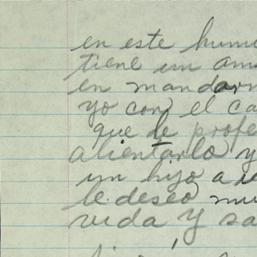 en este humi
tiene un am
en mandar
yo con el ca
que le profe
alientarlo y
un hijo a
le deseo mu
vida y sa